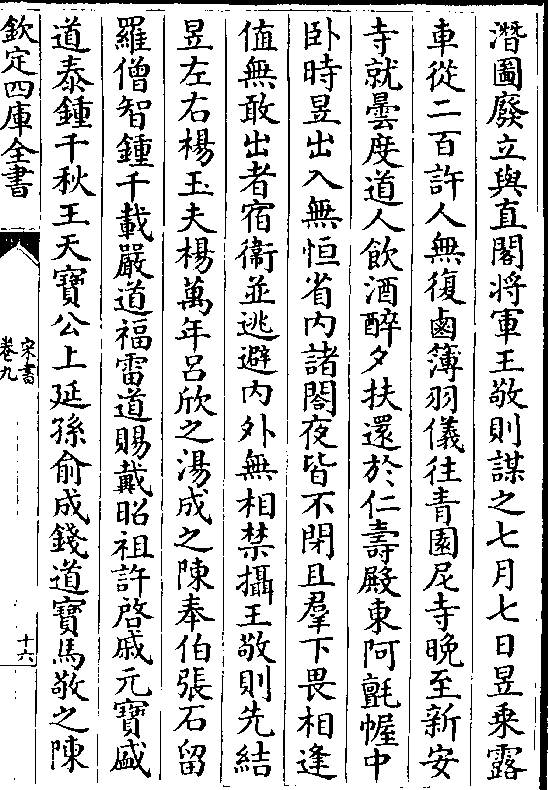 潛圖廢立與直閣將軍王敬則謀之七月七日昱乗露
車從二百許人無復鹵簿羽儀往青園尼寺晚至新安
寺就曇度道人飲酒醉夕扶還於仁壽殿東阿氈幄中
卧時昱出入無恒省内諸閤夜皆不閉且羣下畏相逢
值無敢出者宿衞並逃避内外無相禁攝王敬則先結
昱左右楊玉夫楊萬年吕欣之湯成之陳奉伯張石留
羅僧智鍾千載嚴道福雷道賜戴昭祖許啓戚元寶盛
道泰鍾千秋王天寶公上延孫俞成錢道寶馬敬之陳
欽定四庫全書
宋書
卷九
十六